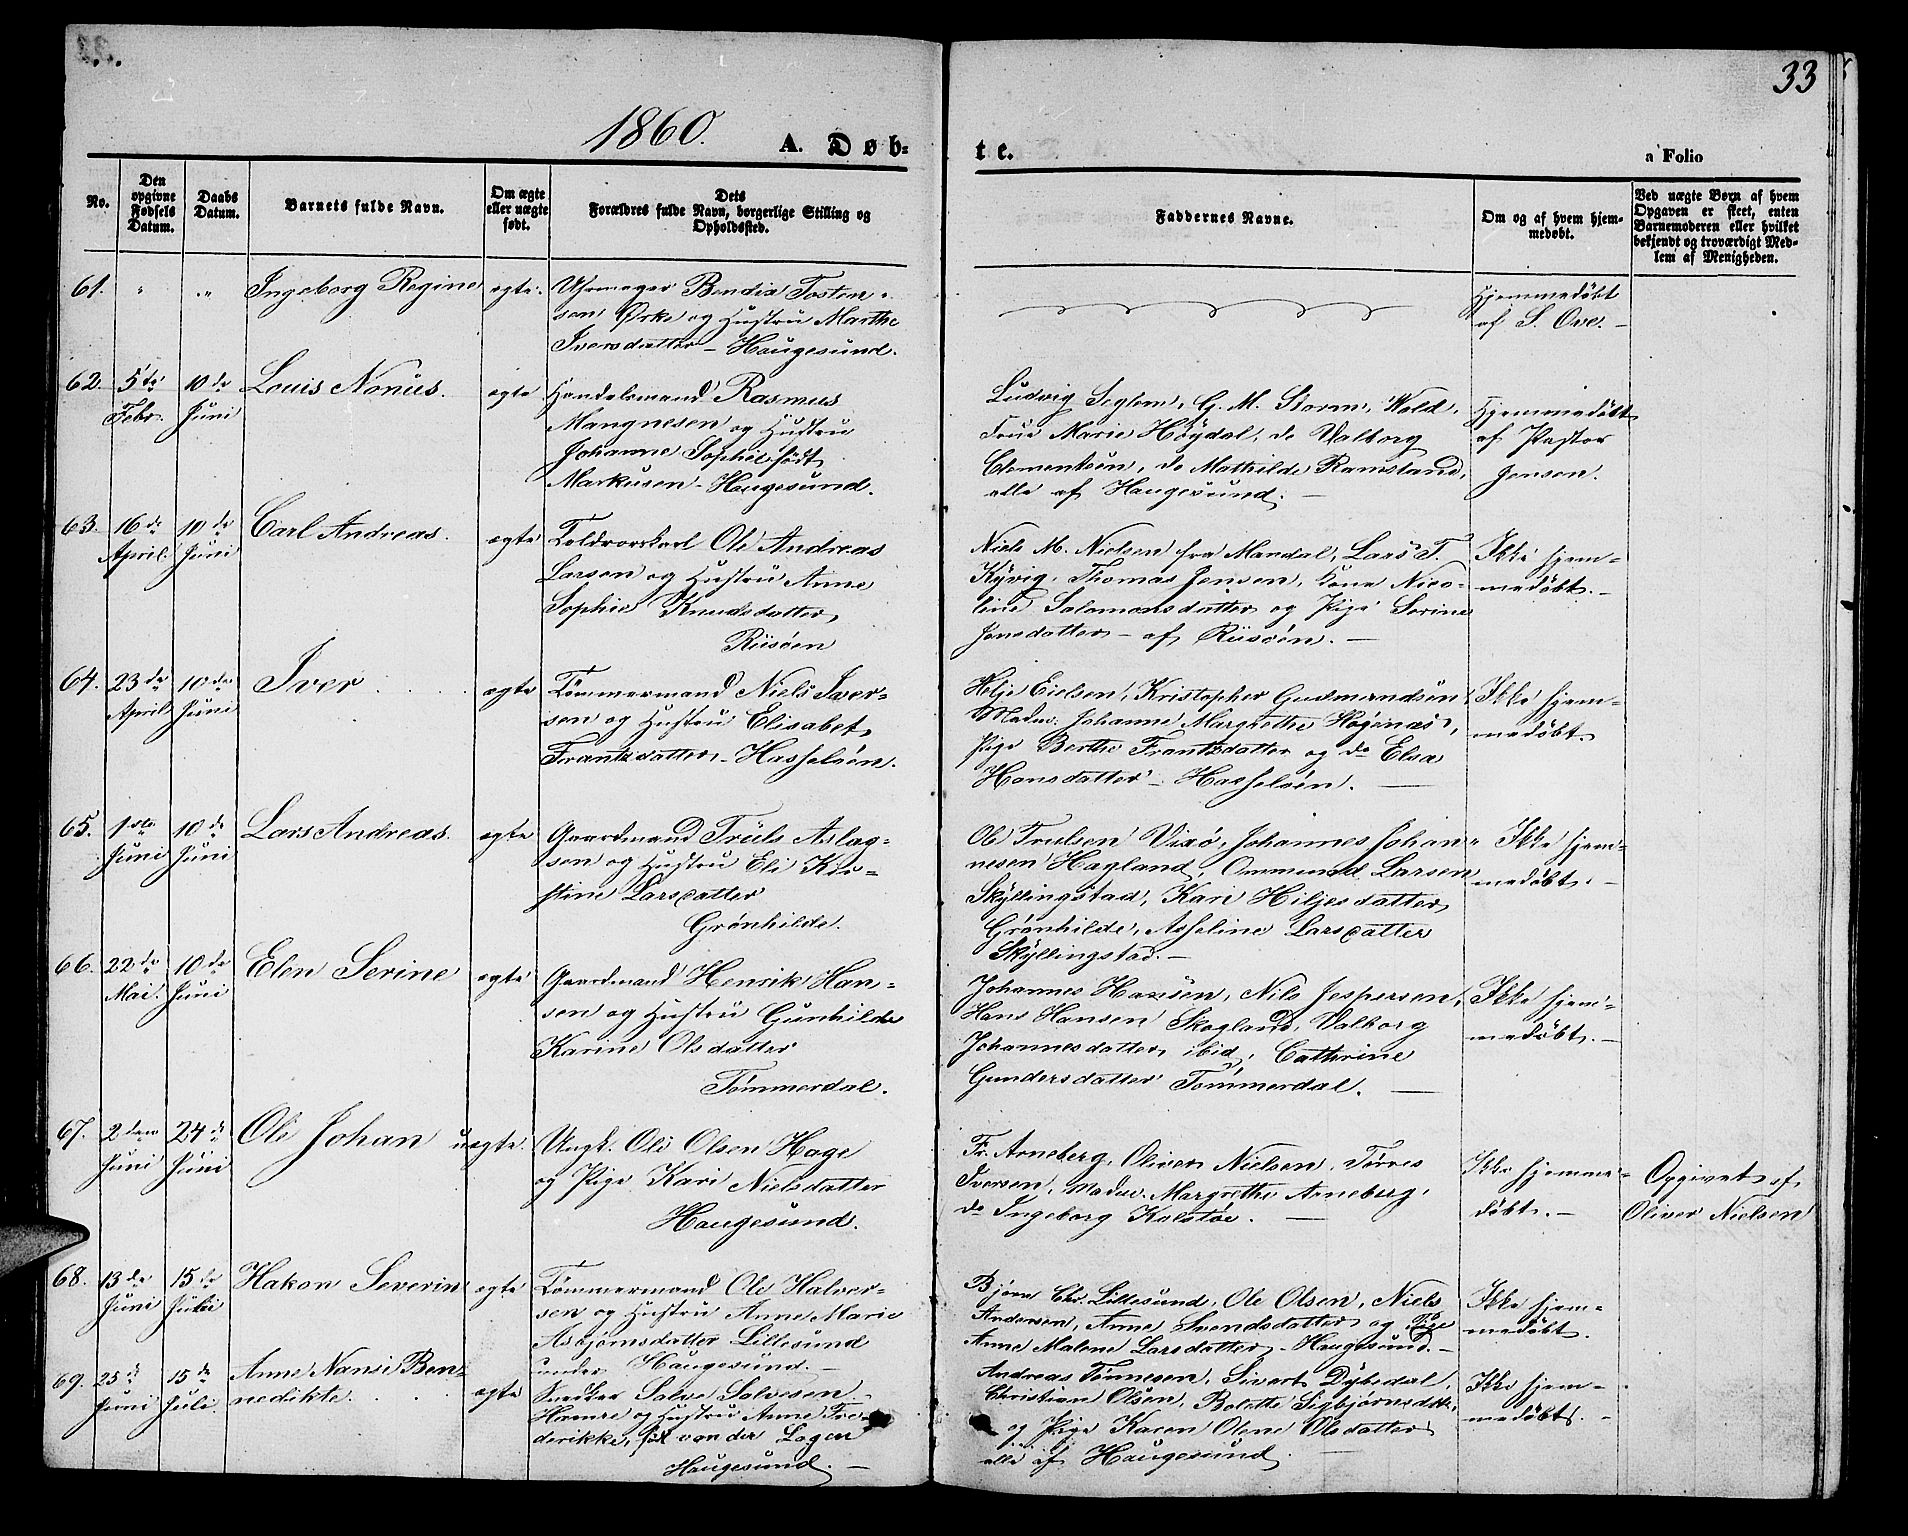 33
1860. A. Døb=te. a Folio
No.
Den opgivne Fødsels Datum.
Daabs Datum.
Barnets fulde Navn.
Om ægte eller uægte født.
Dets Forældres fulde Navn, borgerlige Stilling og Opholdssted.
Faddernes Navne.
Om og af hvem hjemmedøbt.
Ved uægte Børn af hvem Opgaven er skeet, enten Barnemoderen eller hvilket bekjendt og troværdigt Medlem af Menigheden.
61. " " Ingeborg Regine ægte. Uhrmager Bendix Tosten-
sen Ørke og Hustru Marthe
Iversdatter - Haugesund.
Hjemmedøbt
af S. Ove. -
62. 5te Febr. 10de Juni Louis Nonus. ægte Handelsmand Rasmus
Mangnesen og Hustru
Johanne Sophie født
Markusen - Haugesund.
Ludvig Seglem, G. M. Storm, Wold,
Frue Marie Høydal, do Valborg
Clementsen, do Mathilde Ramsland,
alle af Haugesund. -
Hjemmedøbt
af Pastor
Jensen.
63. 16de April. 10de Juni Carl Andreas. ægte Toldroerskarl Ole Andreas
Larsen og Hustru Anne
Sophie Knudsdatter,
Riisøen
Niels M. Nielsen fra Mandal, Lars T.
Kyvig, Thomas Jensen, Kone Nico-
line Salamonsdatter og Pige Serine
Jensdatter - af Riisøen. -
Ikke hjem-
medøbt. -
64. 23de April 10de Juni Iver ægte Tømmermand Niels Iver-
sen og Hustru Elisabet
Frantzdatter - Hasseløen.
Helje Eielsen, Kristopher Gudmundsen,
Madm. Johanne Margrethe Høgenæs,
Pige Berthe Frantzdatter og do Elsa
Hansdatter - Hasseløen. -
Ikke hjem-
medøbt.
65. 1ste Juni 10de Juni Lars Andreas. ægte Gaardmand Truls Aslag-
sen og Hustru Eli Kir-
stine Larsdatter
Grønhilde.
Ole Trulsen Vixø, Johannes Johan-
nesen Hagland, Ommund Larsen
Skyllingstad, Kari Hiljesdatter
Grønhilde, Asseline Larsdatter
Skyllingstad. -
Ikke hjem-
medøbt. -
66. 22de Mai. 10de Juni Elen Serine ægte Gaardmand Henrik Han-
sen og Hustru Gunhilde
Karine Olsdatter
Tømmerdal.
Johannes Hansen, Nils Jespersen,
Hans Hansen Skogland, Valborg
Johannesdatter, ibid, Cathrine
Gundersdatter Tømmerdal. -
Ikke hjem-
medøbt. -
67. 2den Juni 24de Juni Ole Johan uægte. Ungk. Ole Olsen Hage
og Pige Kari Nielsdatter
Haugesund.
Fr. Arneberg, Oliver Nielsen, Tørres
Iversen, Madm. Margrethe Arneberg,
do Ingeborg Kolstøe. -
Ikke hjemme-
døbt. -
Opgivet af
Oliver Nielsen
68. 13de Juni 15de Julii Hakon Severin ægte Tømmermand Ole Halver-
sen og Hustru Anne Marie
Asbjørnsdatter Lillesund
under Haugesund. -
Bjørn Chr. Lillesund, Ole Olsen, Niels
Andersen, Anne Svendsdatter og Pige
Anne Malene Larsdatter - Haugesund. -
Ikke hjem-
medøbt.
69. 25de Juni 15de Juli. Anne Nansi Ben-
nedikte. ægte Snedker Salve Salvesen
Hamre og Hustru Anne Fre-
derikke, født van der Lagen
Haugesund. -
Andreas Tønnesen, Sivert Dybedal,
Christian Olsen, Bolette Sigbjørnsdtr.
og Pige Karen Olene Olsdatter
alle af Haugesund.
Ikke hjem-
medøbt. -